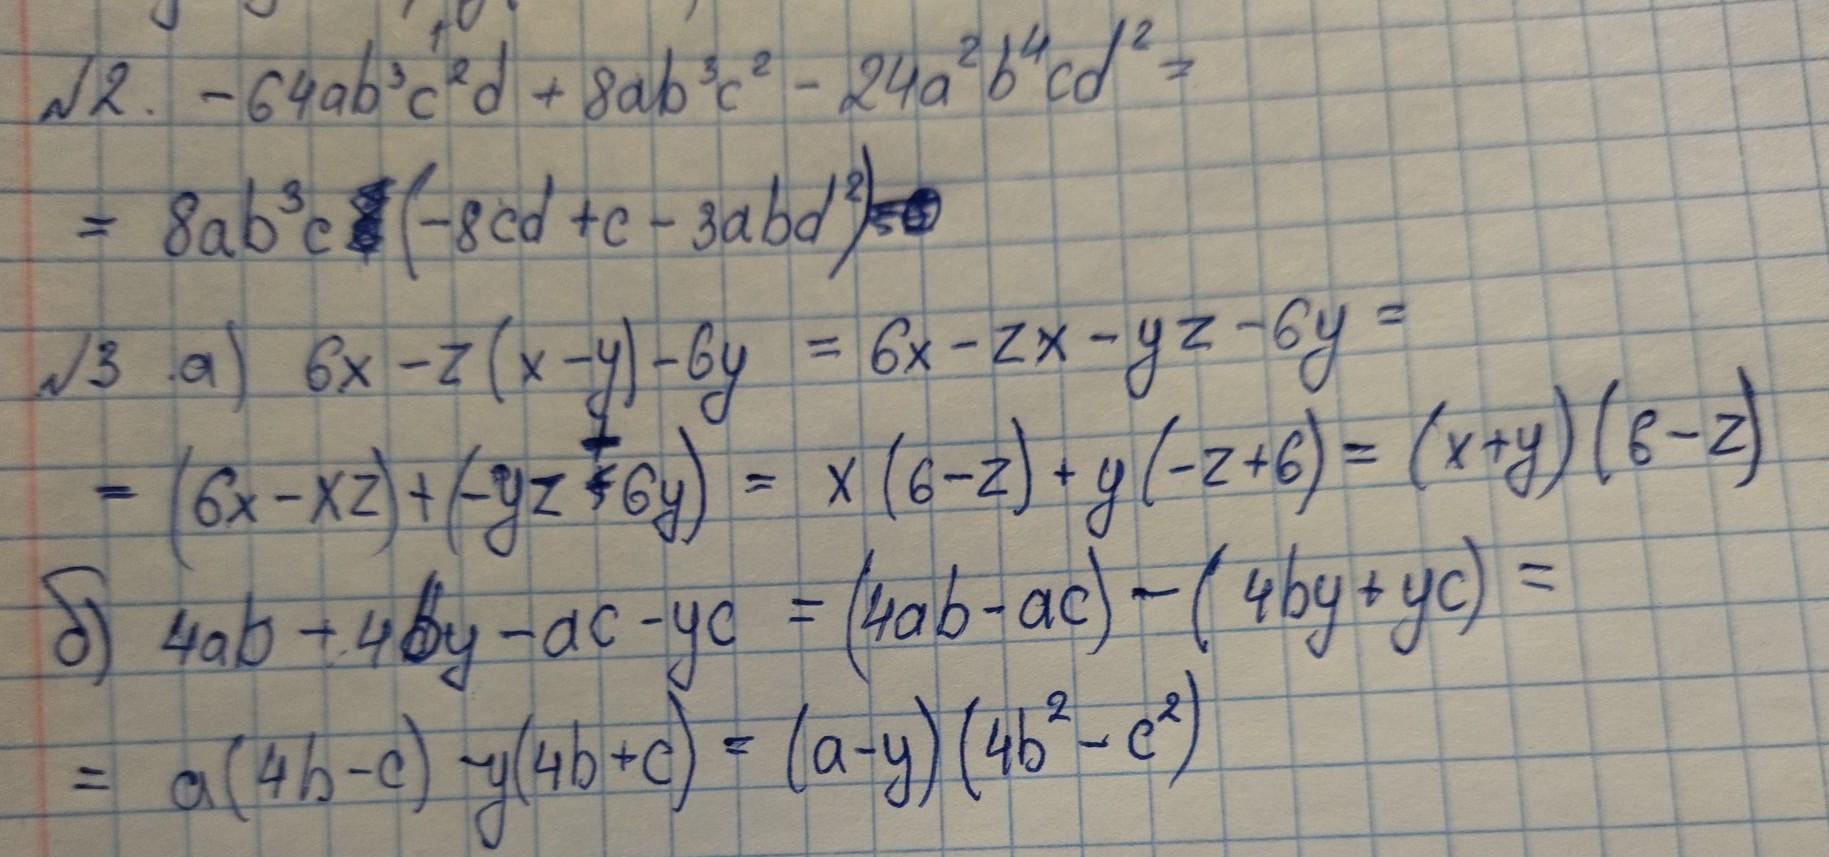 №2. -64ab³c²d + 8ab³c² - 24a²b⁴cd² =
= 8ab³c (-8cd + c - 3abd²)
№3 а) 6x - z(x-y) - 6y = 6x - zx - yz - 6y =
= (6x - xz) + (-yz + 6y) = x(6-z) + y(-z+6) = (x+y)(6-z)
б) 4ab + 4by - ac - yc = (4ab - ac) - (4by + yc) =
= a(4b-c) - y(4b+c) = (a-y)(4b² - c²)